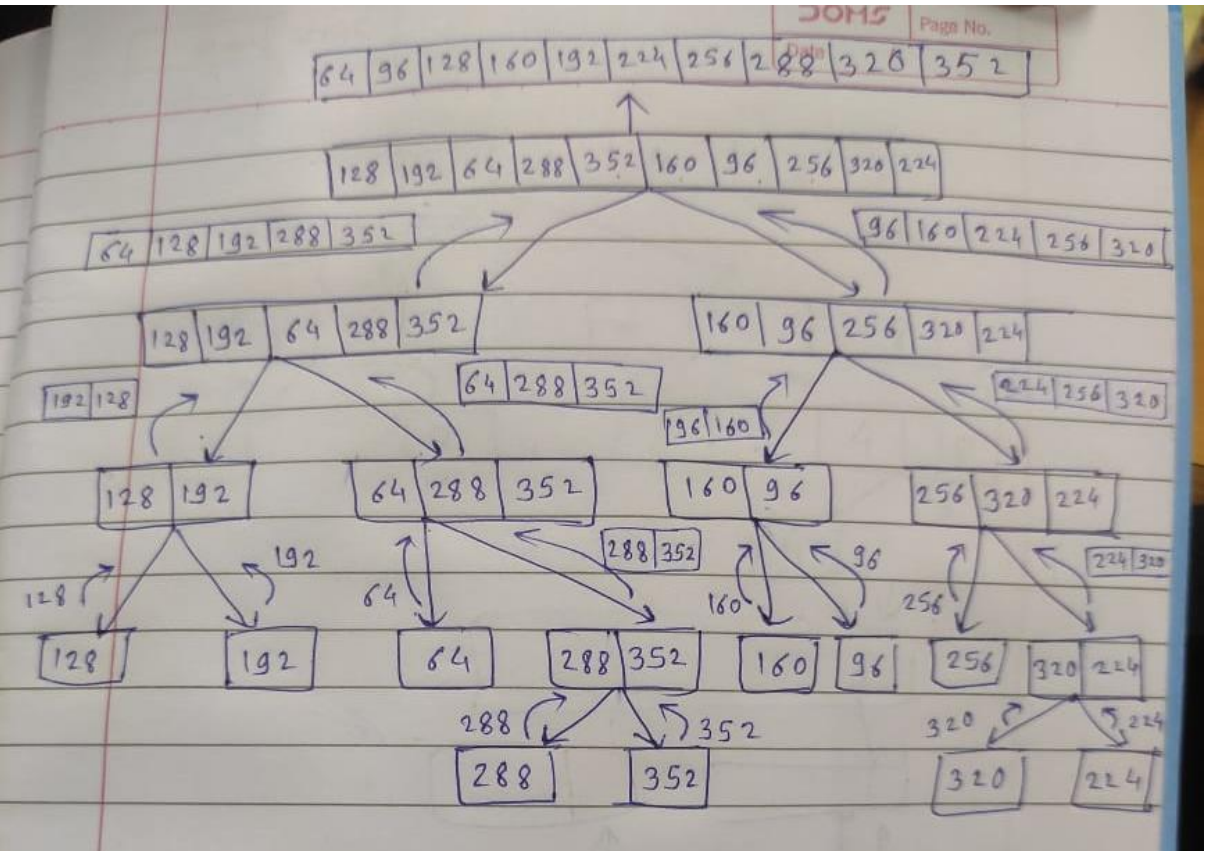 DOMS Page No.
Date
64 96 128 160 192 224 256 288 320 352
128 192 64 288 352 160 96 256 320 224
64 128 192 288 352 96 160 224 256 320
128 192 64 288 352 160 96 256 320 224
192 128 64 288 352 96 160 224 256 320
128 192 64 288 352 160 96 256 320 224
128 192 64 288 352 160 96 256 224 320
128 192 64 288 352 160 96 256 320 224
288 352 320 224
288 352 320 224